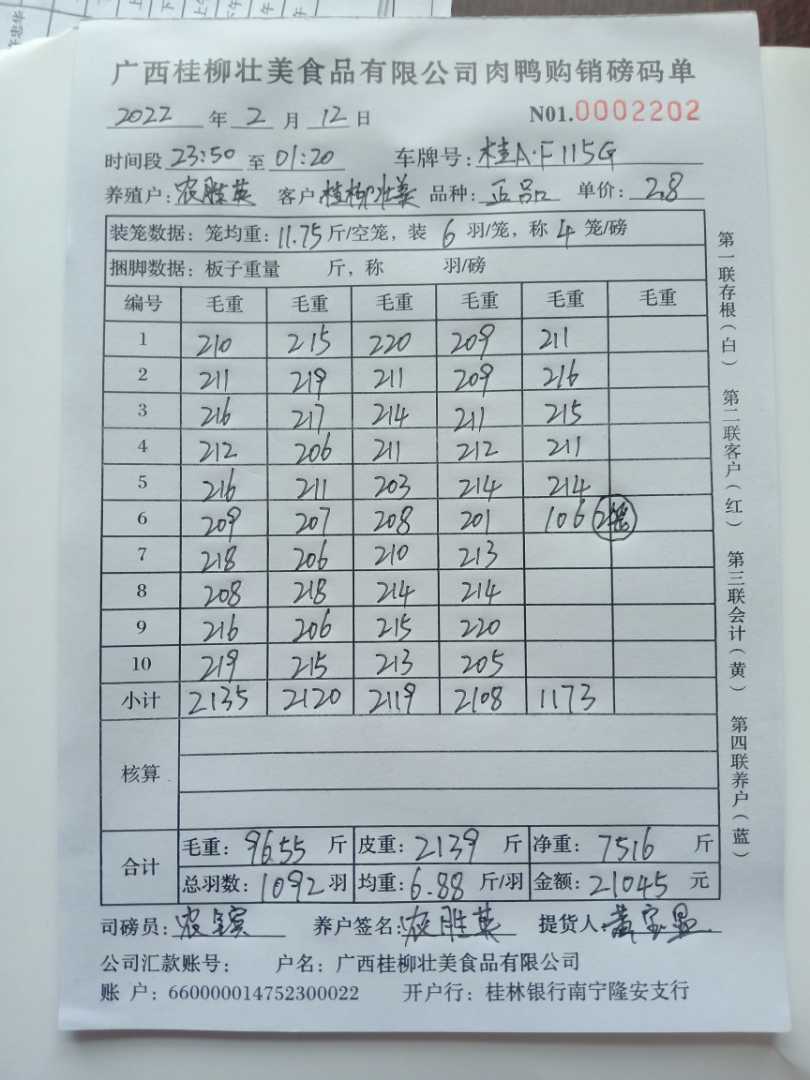 广西桂柳壮美食品有限公司肉鸭购销磅码单
2022 年 2 月 12 日 N01.0002202
时间段 23:50 至 01:20 车牌号: 桂A·F115G
养殖户: 农胜英 客户 桂柳壮美 品种: 正品 单价: 2.8
装笼数据: 笼均重: 11.75 斤/空笼, 装 6 羽/笼, 称 4 笼/磅
捆脚数据: 板子重量 斤, 称 羽/磅
编号 毛重 毛重 毛重 毛重 毛重 毛重
1 210 215 220 209 211
2 211 219 211 209 216
3 216 217 214 211 215
4 212 206 211 212 211
5 216 211 203 214 214
6 209 207 208 201 106 2笼
7 218 206 210 213
8 208 218 214 214
9 216 206 215 220
10 219 215 213 205
小计 2135 2120 2119 2108 1173
核算
合计
毛重: 9655 斤 皮重: 2139 斤 净重: 7516 斤
总羽数: 1092 羽 均重: 6.88 斤/羽 金额: 21045 元
司磅员: 农 养户签名: 农胜英 提货人: 黄宝
公司汇款账号: 户名: 广西桂柳壮美食品有限公司
账 户: 660000014752300022 开户行: 桂林银行南宁隆安支行
第一联存根(白) 第二联客户(红) 第三联会计(黄) 第四联养户(蓝)